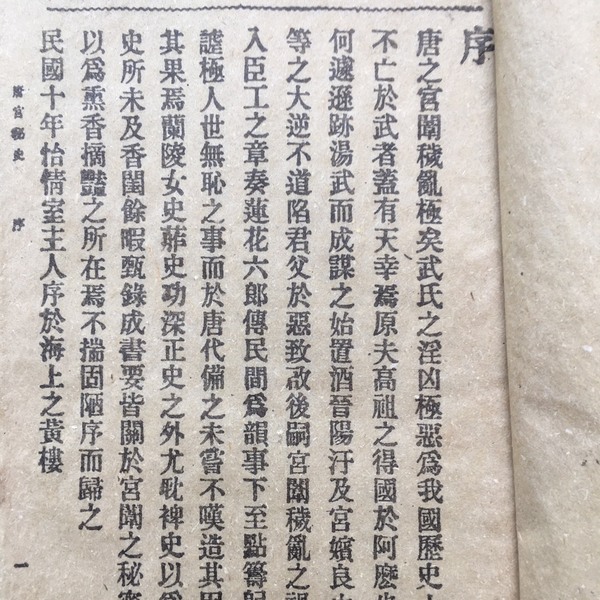 序
唐之宮闈穢亂極矣武氏之淫凶極惡爲我國歷史
不亡於武者蓋有天幸焉原夫高祖之得國於阿麽
何遽遜跡湯武而成謀之始置酒晉陽汙及宮嬪良
等之大逆不道陷君父於惡致啟後嗣宮闈穢亂之
入臣工之章奏蓮花六郎傳民間爲韻事下至點籌
謔極人世無恥之事而於唐代備之未嘗不嘆造其因
其果焉蘭陵女史薜史功深正史之外尤耽裨史以爲
史所未及香閨餘暇甄錄成書要皆關於宮闈之秘
以爲熏香摘豔之所在焉不揣固陋序而歸之
民國十年怡情室主人序於海上之黃樓
唐宮秘史 序 一